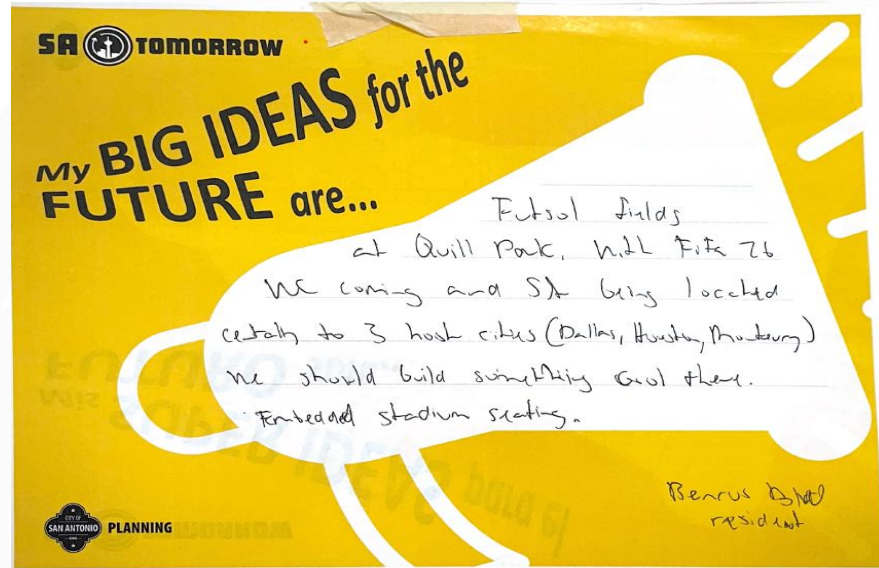 SA TOMORROW
My BIG IDEAS for the
FUTURE are...
Futsol fields
at Quill Park, with Fifa 26
WC coming and SA being located
centally to 3 host cities (Dallas, Houston, Monterrey)
we should build something cool there.
Embedded stadium seating.
Benrus
resident
CITY OF
SAN ANTONIO
PLANNING
FUTURO
mis SUPER IDEAS para el